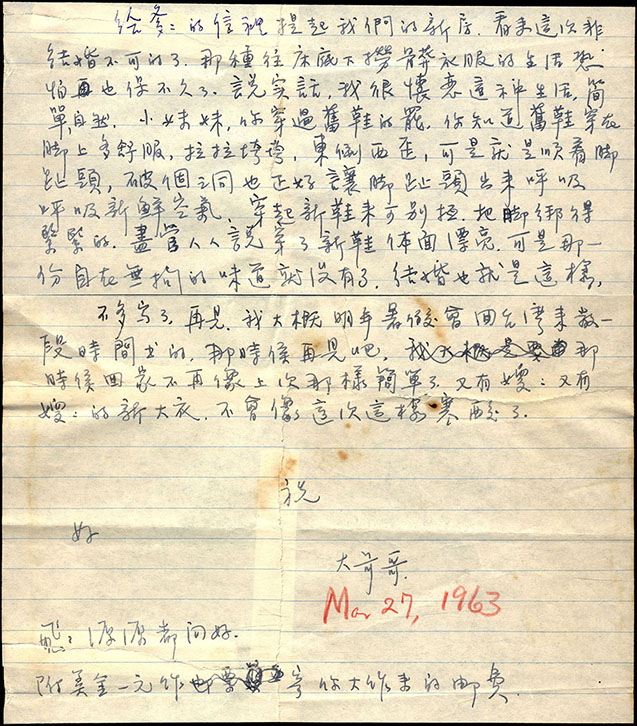 給爹:的信裡提起我們的新房,看來這次非
結婚不可的了.那種往床底下撈髒衣服的生活恐
怕再也保不久了.說實話,我很懷戀這种生活,簡
單自然.小妹妹,你穿過舊鞋的罷,你知道舊鞋穿在
脚上多舒服,拉拉垮垮,東倒西歪,可是就是順着脚
趾頭,破個洞也正好讓脚趾頭出來呼吸
呼吸新鮮空氣,穿起新鞋來可別扭,把脚綁得
緊緊的.盡管人人說穿了新鞋体面漂亮.可是那一
份自在無拘的味道就没有了.結婚也就是這樣,
不多寫了.再見.我大概明年暑假會回台灣来教一
段時間书的,那時候再見吧,那
時候回家不再像上次那樣簡單了.又有嫂:又有
嫂:的新大衣.不會像這次這樣寒酸了.
祝
好
大哥哥.
Mar 27, 1963
源源都问好.
附美金一元作寄你大作来的邮费.